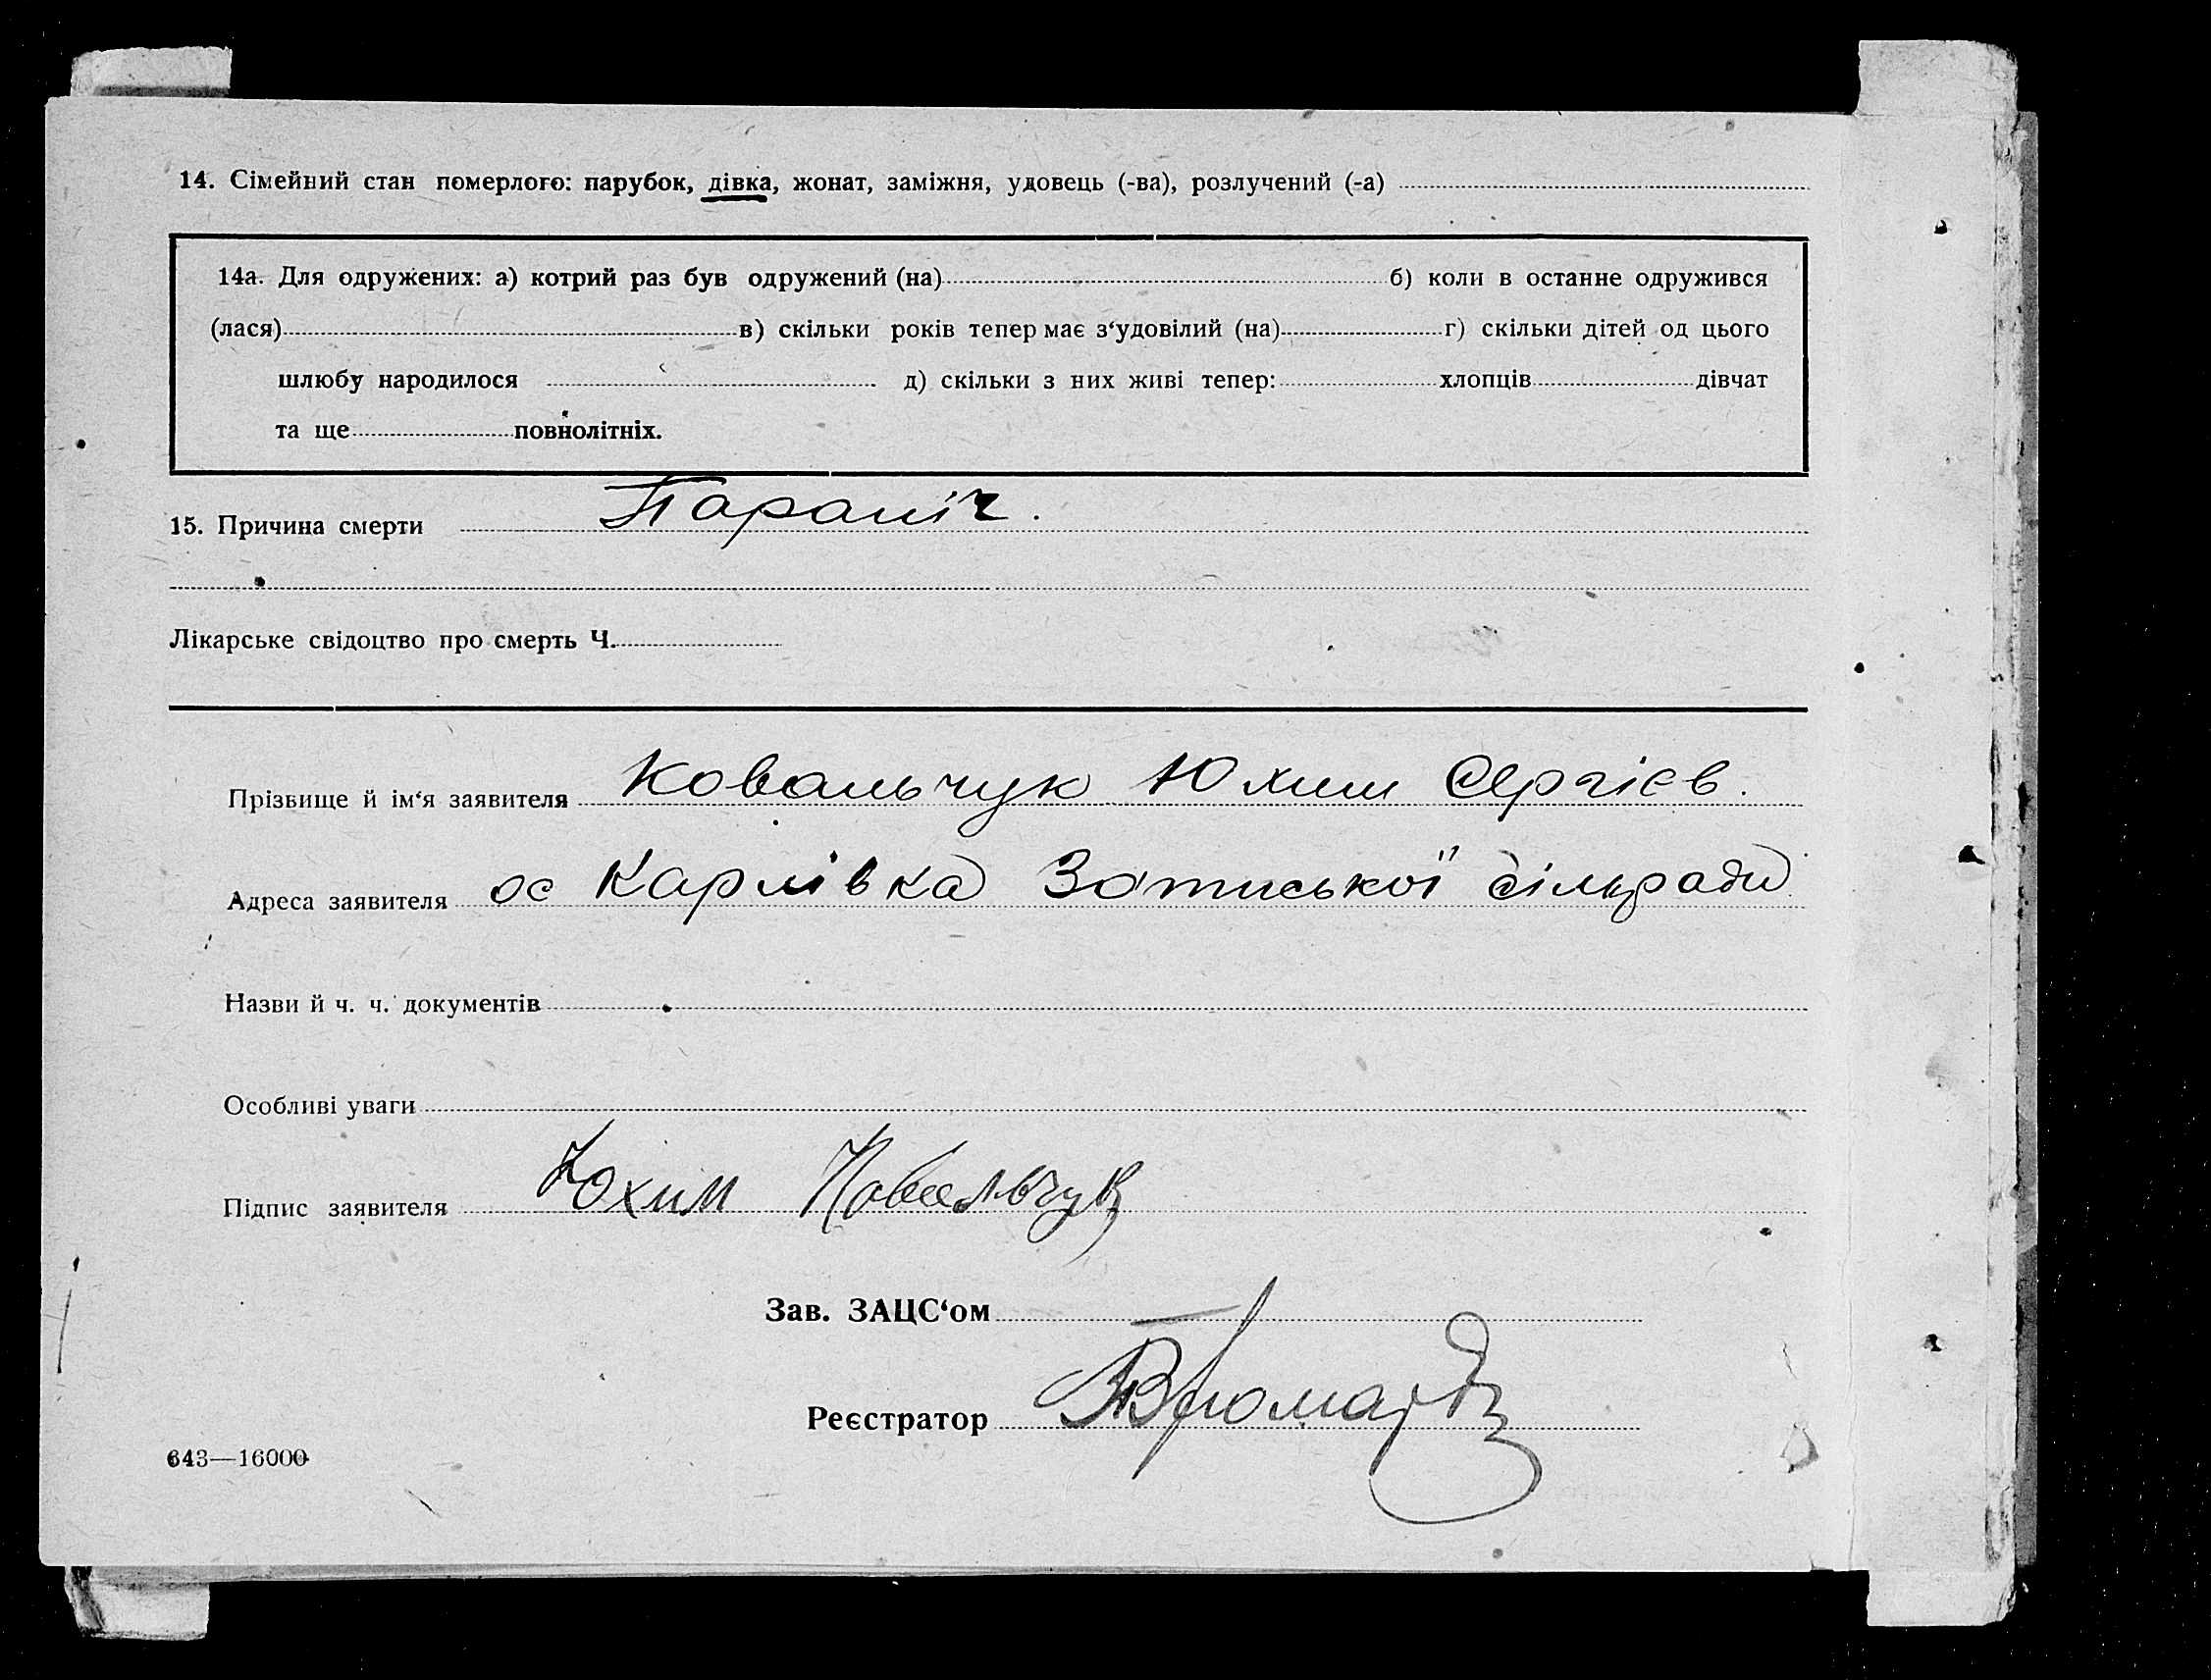 14. Сімейний стан померлого: парубок, дівка, жонат, заміжня, удовець (-ва), розлучений (-а)
14а. Для одружених: а) котрий раз був одружений (на) б) коли в останне одружився
(лася) в) скільки років тепер має з‘удовілий (на) г) скільки дітей од цього
шлюбу народилося д) скільки з них живі тепер: хлопців дівчат
та ще повнолітніх.
15. Причина смерти Параліч.
Лікарське свідоцтво про смерть Ч.
Прізвище й ім‘я заявителя Ковальчук Юхим Сергієв.
Адреса заявителя ос Карлівка Зотиської сільради
Назви й ч. ч. документів
Особливі уваги
Підпис заявителя Юхим Ковальчук
Зав. ЗАЦС‘ом
Реєстратор
643—16000